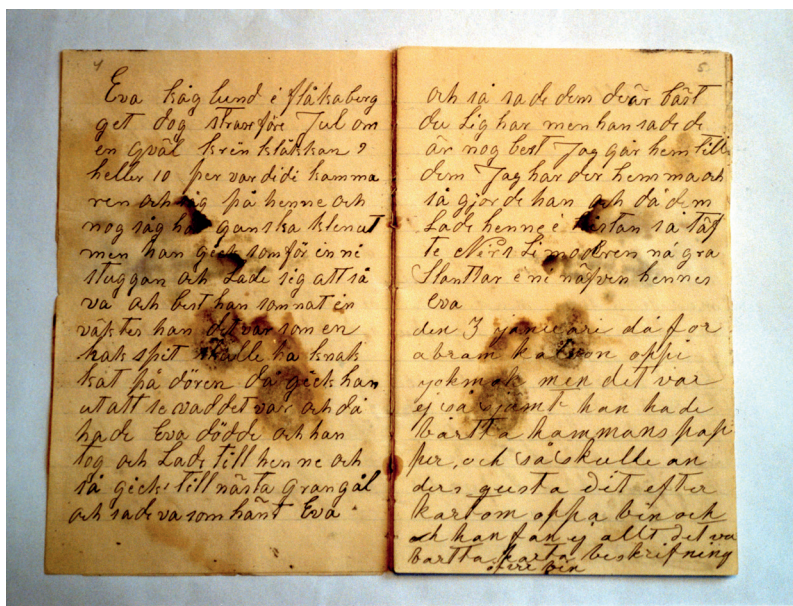 4
Eva Häglund i flåkaberg
get dog straxföre Jul om
en qväl krén klåkkan 9
heller 10 per var didi kamma
ren och såg på henne och
nog såg ha ganska klen ut
men han gick som för in ni
stuggan och Lade sig att så
va och best han somnat in
väktes han det var som en
hakspit skulle ha knak
kat på dören da gick han
ut att se vad det var och då
hade Eva dödde och han
tog och Lade till henne och
så gick till nästa grangål
och sade va som hänt Eva
5
och så sade dem deär bäst
du Lig har men han sade de
är nog best Jag går hem till
dem Jag har der hemma och
så gjorde han och då dem
Lade henne i kistan så
te Ners Limoderen några
Slantar i ne näfven hennes
Eva
den 3 januari då for
abram oppi
yokmok men det var
ej så jamt han hade
bårtta kammans pap
per, och så skulle an
ders gusta dit efter
kartom oppa bin och
ch han fan ej allt det va
bartta karta beskrifning
öfere bin